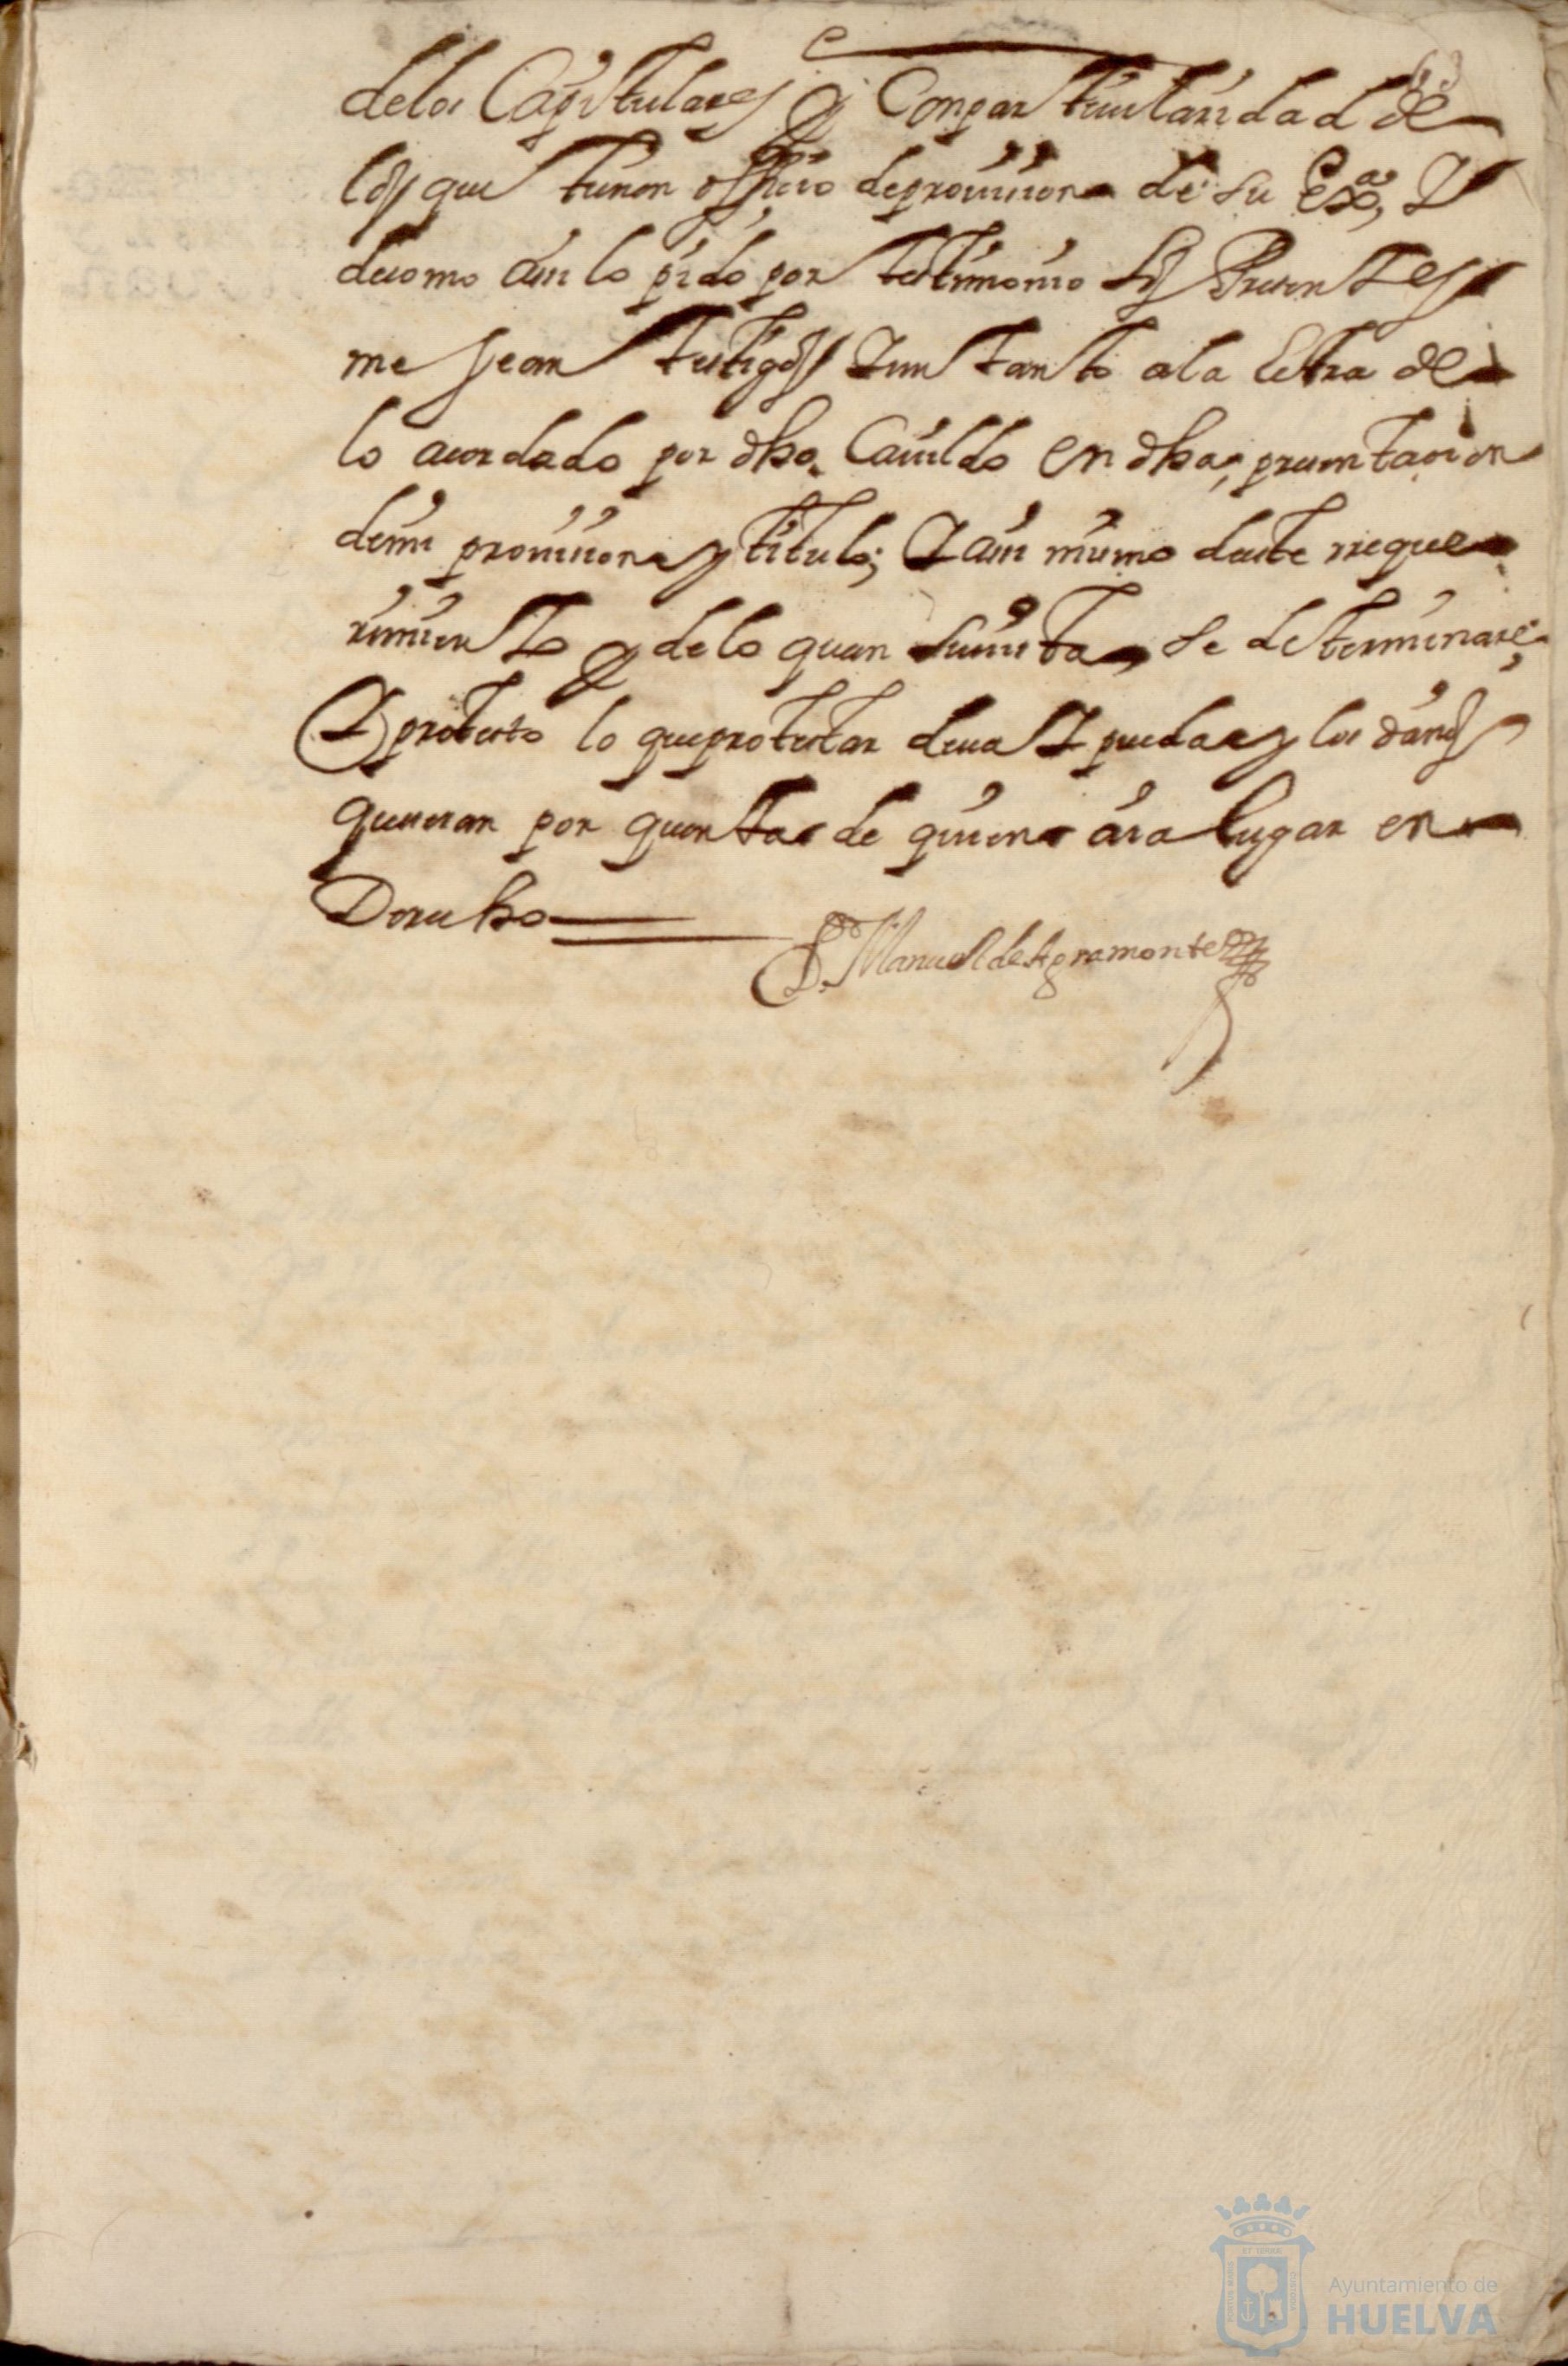 delos Capitulares y Conparticularidad de
los que tienen officio deprouission de su Exa, Y
decomo assi lo pido por testimonio los Pressentes
me sean testigos Y un tanto ala letra de
lo acordado por dho. Cauildo en dha, presentacion
demi prouission y titulo; Y assi mismo deeste rreque
rimiento y delo que en su uista se determinare,
Y protesto lo queprotestar deua Y pueda y los daños
queseran por quenta de quien aia lugar en
Derecho
D. Manuel de Agramonte
Ayuntamiento de
HUELVA